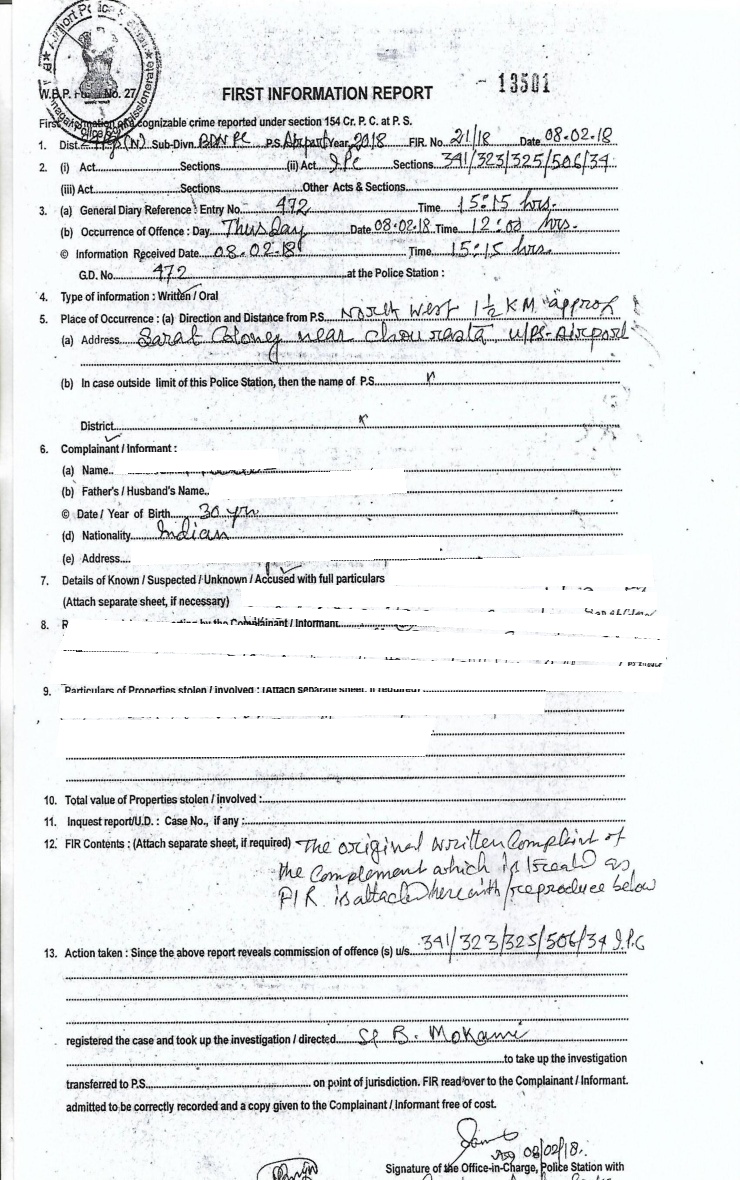 Airport Police Station
W.B.P. Form No. 27
FIRST INFORMATION REPORT
13501
First Information of cognizable crime reported under section 154 Cr. P. C. at P. S.
1. Dist. (N) Sub-Divn. BDN PC P.S. Airport Year 2018 FIR. No. 21/18 Date 08-02-18
2. (i) Act Sections (ii) Act I.P.C Sections 341/323/325/506/34
(iii) Act Sections Other Acts & Sections
3. (a) General Diary Reference : Entry No. 472 Time 15:15 hrs.
(b) Occurrence of Offence : Day Thusday Date 08-02-18 Time 12:00 hrs.
© Information Received Date 08-02-18 Time 15:15 hrs
G.D. No. 472 at the Police Station :
4. Type of information : Written / Oral
5. Place of Occurrence : (a) Direction and Distance from P.S. North West 1½ KM approx
(a) Address Sarat Coloney near chourasta u/PS-Airport
(b) In case outside limit of this Police Station, then the name of P.S.
District
6. Complainant / Informant :
(a) Name..
(b) Father's / Husband's Name..
© Date / Year of Birth 30 yrs
(d) Nationality Indian
(e) Address....
7. Details of Known / Suspected / Unknown / Accused with full particulars
(Attach separate sheet, if necessary)
8. R by the Complainant / Informant
9. Particulars of Properties stolen / involved : (Attach separate sheet, if required)
10. Total value of Properties stolen / involved :
11. Inquest report/U.D. : Case No., if any :
12. FIR Contents : (Attach separate sheet, if required) The original written Complaint of
the Complement which is treated as
FIR is attached herewith/reproduce below
13. Action taken : Since the above report reveals commission of offence (s) u/s. 341/323/325/506/34 I.P.C
registered the case and took up the investigation / directed SI B. Mokami
to take up the investigation
transferred to P.S. on point of jurisdiction. FIR read over to the Complainant / Informant.
admitted to be correctly recorded and a copy given to the Complainant / Informant free of cost.
08/02/18.
Signature of the Office-in-Charge, Police Station with